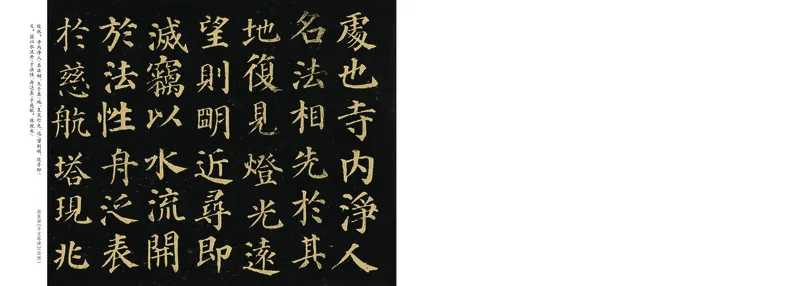 處也寺内淨人
名法相先於其
地復見燈光遠
望則明近尋即
滅竊以水流開
於法性舟泛表
於慈航塔現兆